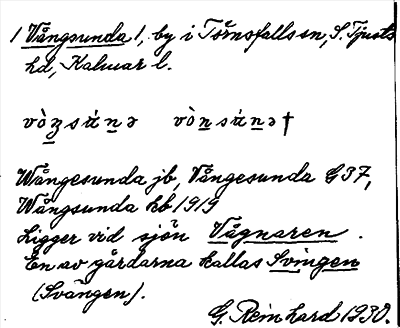 / Vångsunda /, by i Törnsfalls sn, S. Tjusts
hd, Kalmar l.
vòȝsáṉə vòṉsáṉə †
Wångesunda jb, Vångesunda G 37,
Wångsunda kb 1919
Ligger vid sjön Vågnaren.
En av gårdarna kallas Svingen
(Svängen).
G. Reinhard 1930.